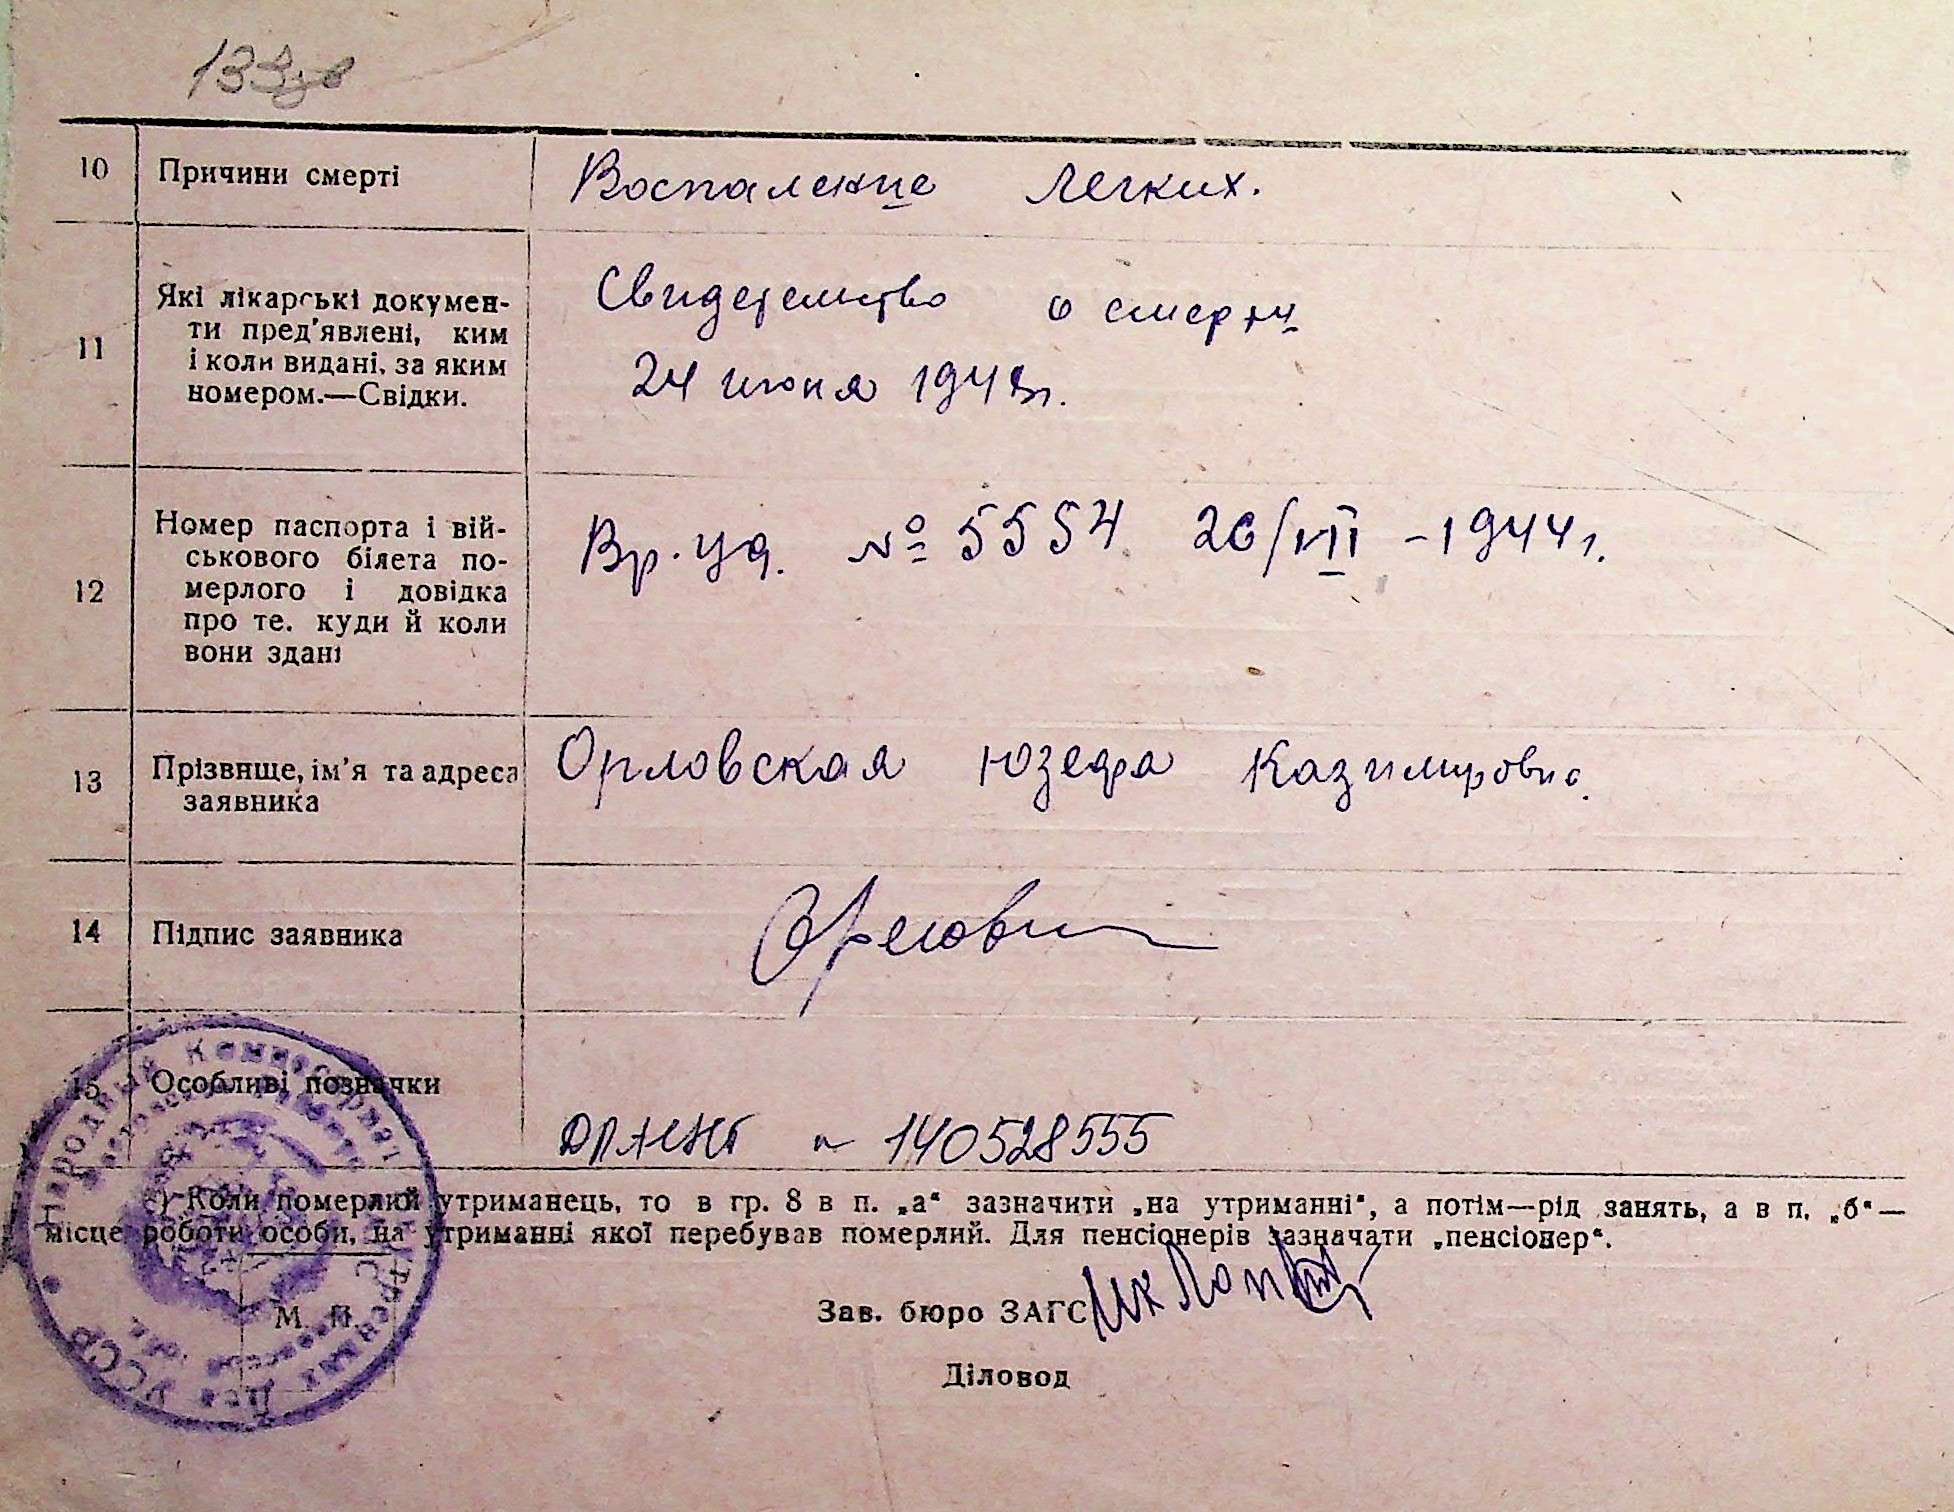 133
10 Причини смерті Воспаление легких.
11 Які лікарські докумен-
ти пред'явлені, ким
і коли видані, за яким
номером.—Свідки.
Свидетельство о смерти
24 июня 1948г.
12 Номер паспорта і вій-
ськового білета по-
мерлого і довідка
про те. куди й коли
вони здані
Вр. уд. № 5554 26/VII -1944г.
13 Прізвище, ім'я та адреса
заявника
Орловская Юзефа Казимировна
14 Підпис заявника
15 Особливі позначки
140528555
*) Коли померлий утриманець, то в гр. 8 в п. „а“ зазначити „на утриманні“, а потім—рід занять, а в п. „б“—
місце роботи особи, на утриманні якої перебував померлий. Для пенсіонерів зазначати „пенсіонер“.
М. П.
Зав. бюро ЗАГС
Діловод
Народный Комиссариат Внутренних Дел УССР